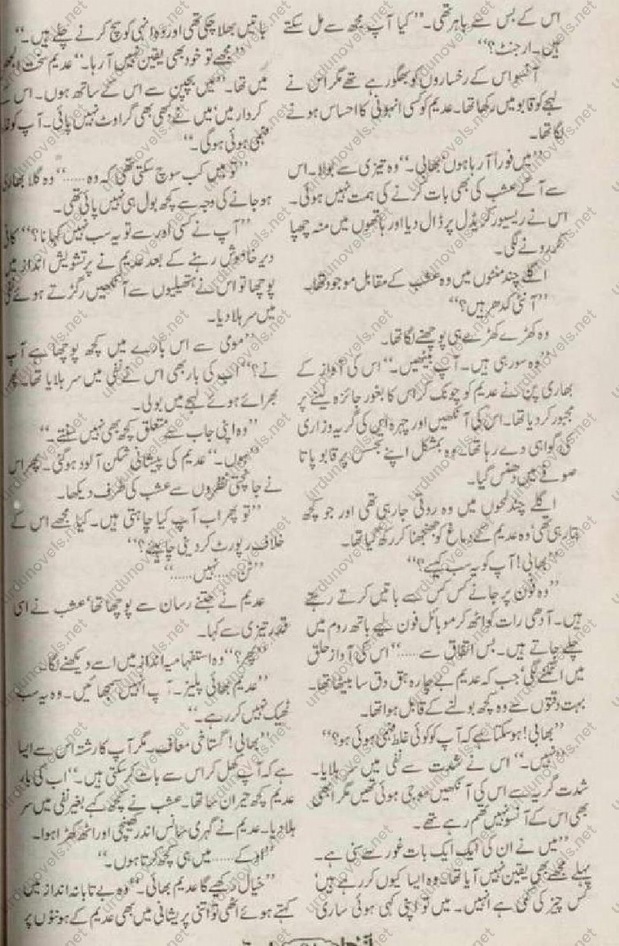 اس کے بس سے باہر تھی۔ ”کیا آپ مجھ سے مل سکتے
ہیں۔ ارجنٹ؟“
آنسو اس کے رخساروں کو بھگو رہے تھے مگر اس نے
لہجے کو قابو میں رکھا تھا۔ عدیم کو کسی انہونی کا احساس ہونے
لگا تھا۔
”میں فوراً آ رہا ہوں بھابی۔“ وہ تیزی سے بولا۔ اس
سے آگے عشب کی بھی بات کرنے کی ہمت نہیں ہوئی۔
اس نے ریسیور کریڈل پر ڈال دیا اور ہاتھوں میں منہ چھپا
کر رونے لگی۔
اگلے چند منٹوں میں وہ عشب کے مقابل موجود تھا۔
”آنٹی کدھر ہیں؟“
وہ کھڑے کھڑے ہی پوچھنے لگا تھا۔
”وہ سو رہی ہیں۔ آپ بیٹھیں۔“ اس کی آواز کے
بھاری پن نے عدیم کو چونک کر اس کا بغور جائزہ لینے پر
مجبور کر دیا تھا۔ اس کی آنکھیں اور چہرہ اس کی گریہ وزاری
کی گواہی دے رہا تھا۔ وہ بمشکل اپنے تجسس پر قابو پاتا
صوفے میں دھنس گیا۔
اگلے چند لمحوں میں وہ روتی جا رہی تھی اور جو کچھ
بتا رہی تھی وہ عدیم کے دماغ کو جھنجھنا کر رکھ گیا تھا۔
”بھابی! آپ کو یہ سب کیسے؟“
”وہ فون پر جانے کس کس سے باتیں کرتے رہتے
ہیں۔ آدھی رات کو اٹھ کر موبائل فون لیے باتھ روم میں
چلے جاتے ہیں۔ بس اتفاق سے.....“ اس کی آواز حلق
میں اٹکنے لگی جب کہ عدیم بے چارہ ہق دق سا بیٹھا تھا۔
بہت دقتوں سے وہ کچھ بولنے کے قابل ہوا تھا۔
”بھابی! ہو سکتا ہے کہ آپ کو کوئی غلط فہمی ہوئی ہو؟“
”نہیں۔“ اس نے شدت سے نفی میں سر ہلایا۔
شدت گریہ سے اس کی آنکھیں سوجی ہوئی تھیں مگر ابھی
بھی اس کے آنسو نہیں تھم رہے تھے۔
”میں نے ان کی ایک ایک بات غور سے سنی ہے۔
پہلے مجھے بھی یقین نہیں آیا تھا۔ وہ ایسا کیوں کر رہے ہیں
کس چیز کی کمی ہے انہیں۔ میں تو اپنی کہی ہوئی ساری
باتیں بھلا چکی تھی اور وہ انہی کو سچ کرنے چلے ہیں۔“
”مجھے تو خود بھی یقین نہیں آ رہا۔“ عدیم سخت
میں تھا۔ ”میں بچپن سے اس کے ساتھ ہوں۔ اس کے
کردار میں میں نے کبھی بھی گراوٹ نہیں پائی۔ آپ کو
فہمی ہوئی ہوگی۔“
”تو میں کب سوچ سکتی تھی کہ وہ.....“ وہ گلا بھاری
ہو جانے کی وجہ سے کچھ بول ہی نہیں پائی تھی۔
”آپ نے کسی اور سے تو یہ سب نہیں کہا نا؟“ کافی
دیر خاموش رہنے کے بعد عدیم نے پرتشویش انداز میں
پوچھا تو اس نے ہتھیلیوں سے آنکھیں رگڑتے ہوئے نفی
میں سر ہلا دیا۔
”موی سے اس بارے میں کچھ پوچھا ہے آپ
نے؟“ اب کی بار بھی اس نے نفی میں سر ہلایا تھا۔ پھر
بھرائے ہوئے لہجے میں بولی۔
”وہ اپنی جاب سے متعلق کچھ بھی نہیں سنتے۔“
”ہوں۔“ عدیم کی پیشانی شکن آلود ہو گئی۔ پھر اس
نے جانچتی نظروں سے عشب کی طرف دیکھا۔
”تو پھر اب آپ کیا چاہتی ہیں۔ کیا مجھے اس کے
خلاف رپورٹ کر دینی چاہیئے؟“
”نن..... نہیں.....“
عدیم نے جتنے رسان سے پوچھا تھا عشب نے اسی
قدر تیزی سے کہا۔
”پھر؟“ وہ استفہامیہ انداز میں اسے دیکھنے لگا۔
”عدیم بھائی پلیز۔ آپ انہیں سمجھائیں۔ وہ یہ سب
ٹھیک نہیں کر رہے۔“
”بھابی! گستاخی معاف۔ مگر آپ کا رشتہ اس سے ایسا
ہے کہ آپ کھل کر اس سے بات کر سکتی ہیں۔“ اب کی بار
عدیم کچھ حیران سا تھا۔ عشب نے کچھ کہے بغیر نفی میں سر
ہلا دیا۔ عدیم نے گہری سانس اندر کھینچی اور اٹھ کھڑا ہوا۔
”اوکے..... میں ہی کچھ کرتا ہوں۔“
”خیال رکھیے گا عدیم بھائی۔“ وہ بے تابانہ انداز میں
کہتے ہوئے اٹھی تو اتنی پریشانی میں بھی عدیم کے ہونٹوں پر
urdunovels.net